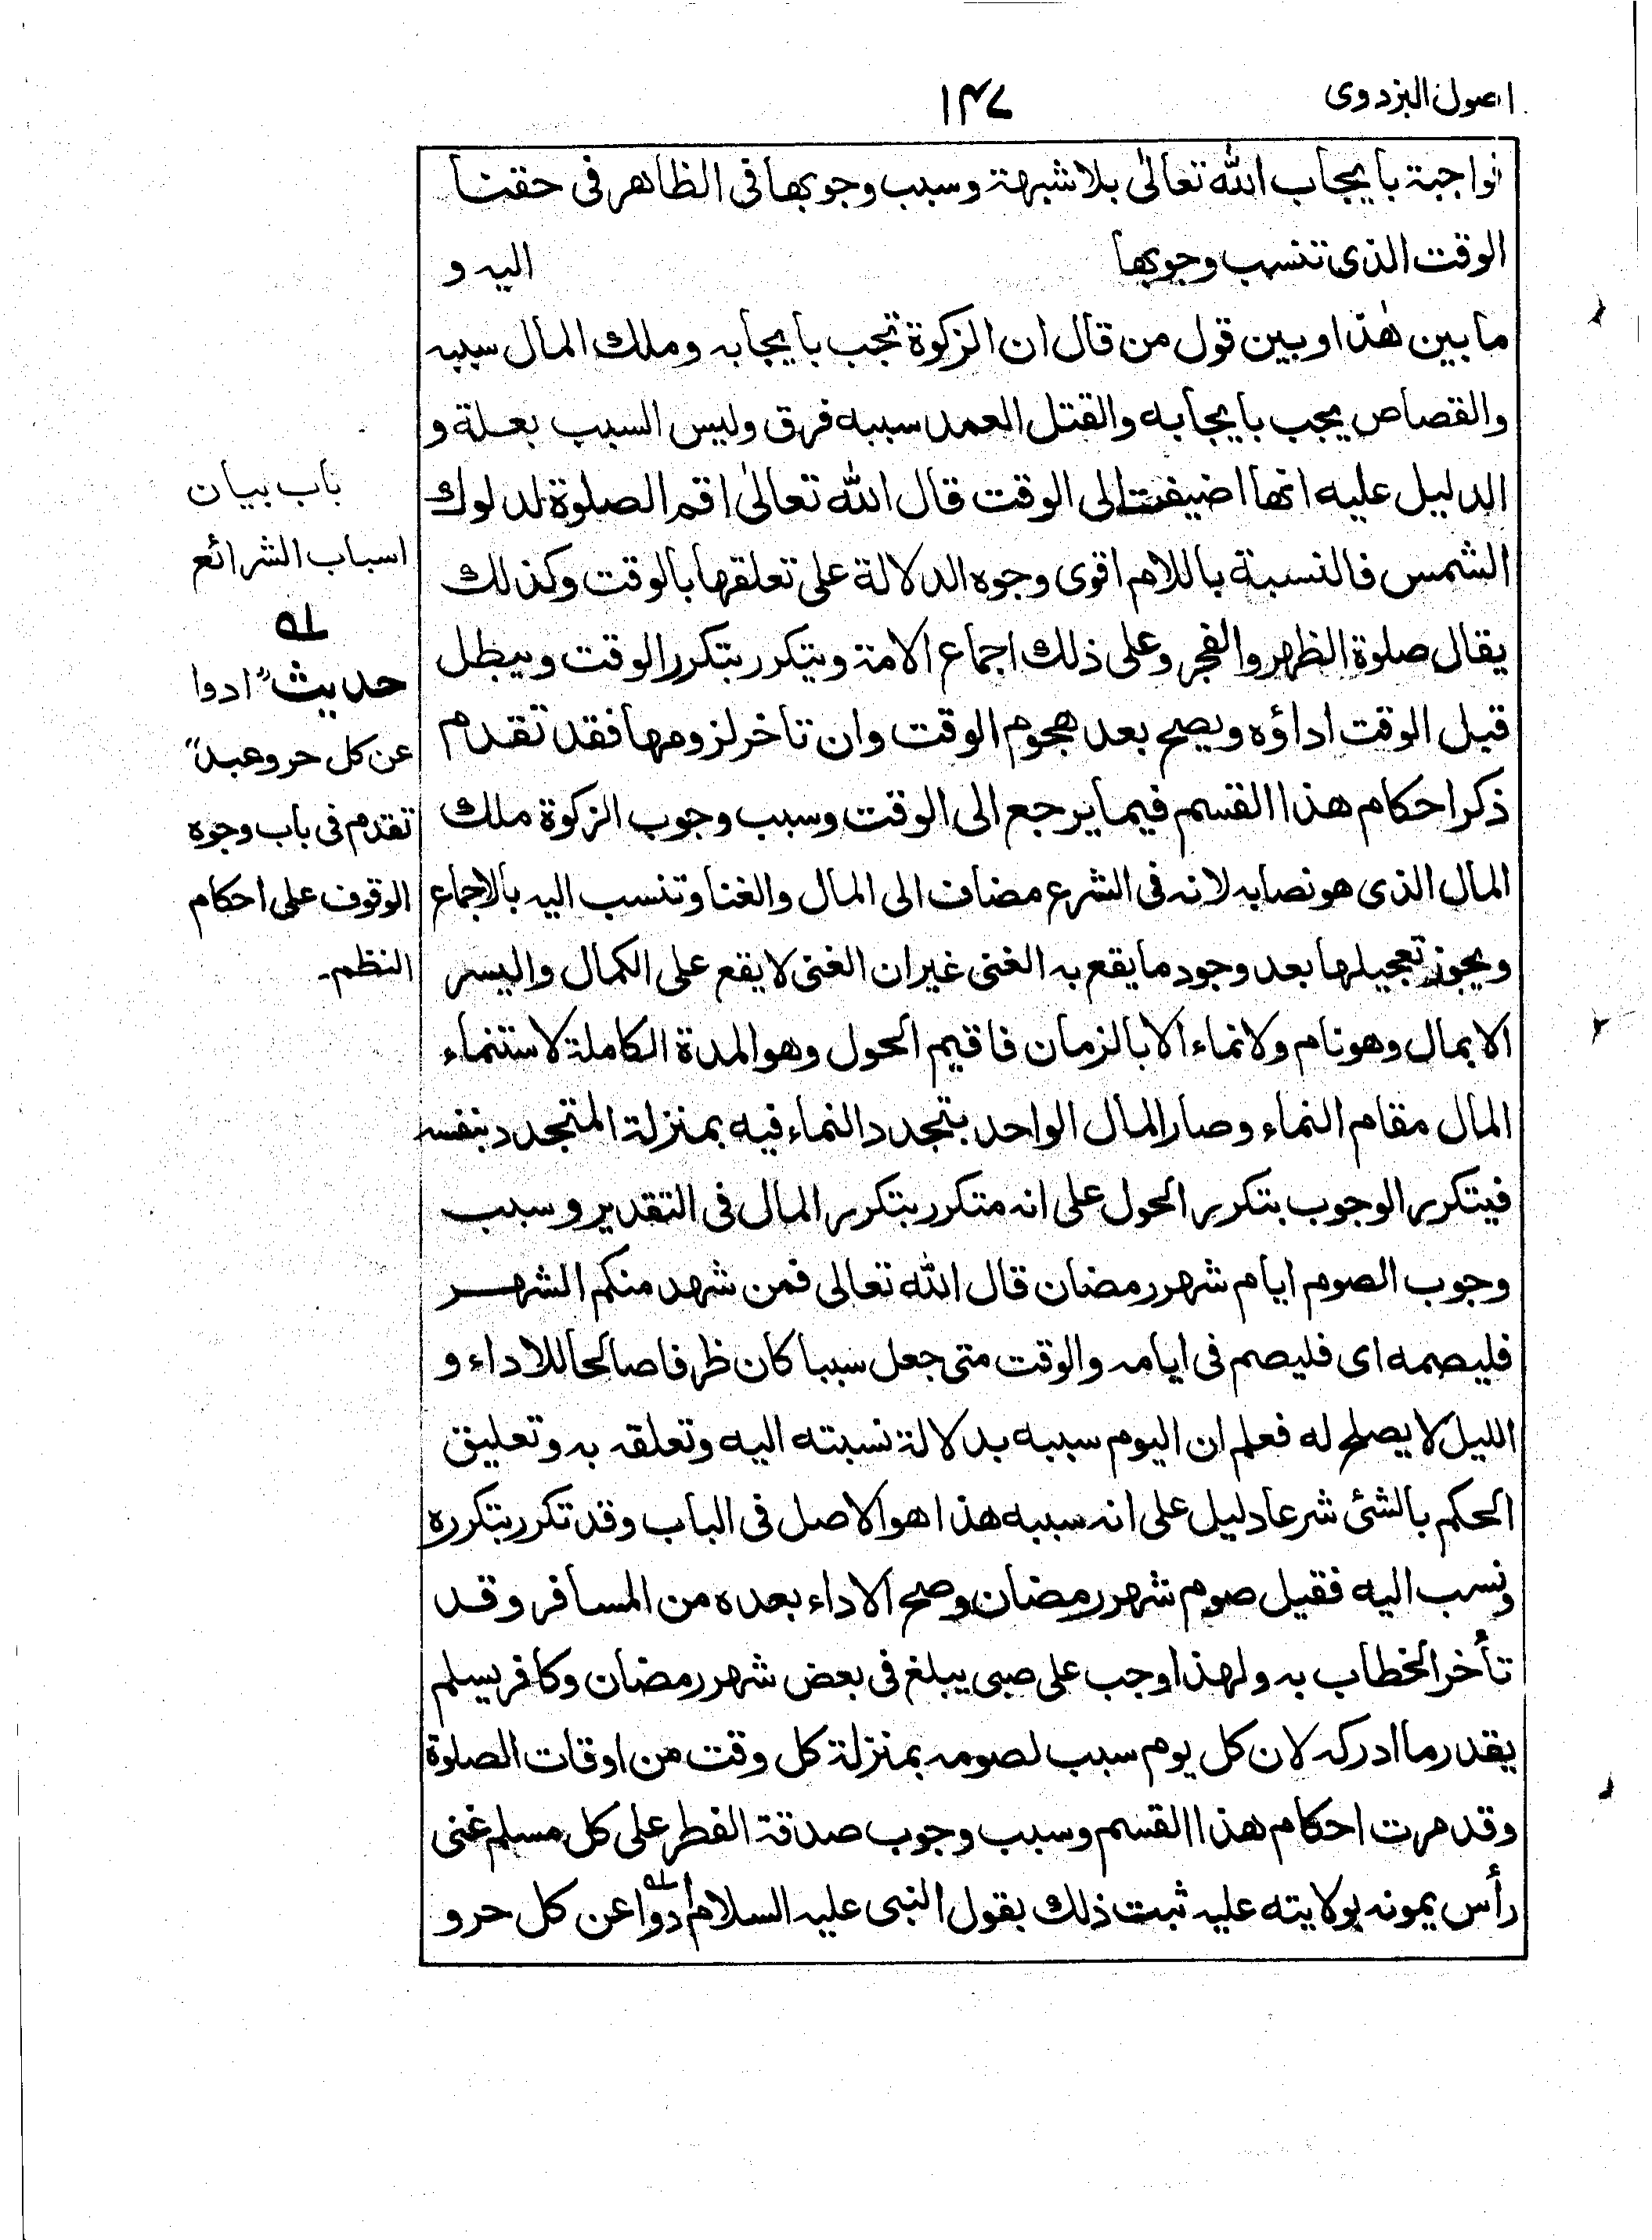 اصول البزدوی
۱۴۷
فواجبة بایجاب الله تعالیٰ بلا شبهة وسبب وجوبها فی الظاهر فی حقنا
الوقت الذی تنسب وجوبها الیه و
ما بین هٰذا وبین قول من قال ان الزکوة تجب بایجابه وملك المال سببه
والقصاص یجب بایجابه والقتل العمد سببه فرق ولیس السبب بعلة و
الدلیل علیه انها اضیفت الی الوقت قال الله تعالیٰ اقم الصلوة لدلوك
الشمس فالنسبة باللام اقوی وجوه الدلالة علی تعلقها بالوقت وکذلك
یقال صلوة الظهر والفجر وعلی ذلك اجماع الامة ویتکرر بتکرر الوقت ویبطل
قبل الوقت اداؤه ویصح بعد هجوم الوقت وان تاخر لزومها فقد تقدم
ذکر احکام هذا القسم فیما یرجع الی الوقت وسبب وجوب الزکوة ملك
المال الذی هو نصابه لانه فی الشرع مضاف الی المال والغنا وتنسب الیه بالاجماع
ویجوز تعجیلها بعد وجود ما یقع به الغنی غیر ان الغنی لا یقع علی الکمال والیسر
الا بمال وهو نام ولا نماء الا بالزمان فاقیم الحول وهو المدة الکاملة لاستنماء
المال مقام النماء وصار المال الواحد بتجدد النماء فیه بمنزلة المتجدد بنفسه
فیتکرر الوجوب بتکرر الحول علی انه متکرر بتکرر المال فی التقدیر وسبب
وجوب الصوم ایام شهر رمضان قال الله تعالی فمن شهد منکم الشهر
فلیصمه ای فلیصم فی ایامه والوقت متی جعل سببا کان ظرفا صالحا للاداء و
اللیل لا یصلح له فعلم ان الیوم سببه بدلالة نسبته الیه وتعلقه به وتعلیق
الحکم بالشئ شرعا دلیل علی انه سببه هذا هو الاصل فی الباب وقد تکرر بتکرره
ونسب الیه فقیل صوم شهر رمضان وصح الاداء بعده من المسافر وقد
تأخر الخطاب به ولهذا وجب علی صبی یبلغ فی بعض شهر رمضان وکافر یسلم
یقدر ما ادرکه لان کل یوم سبب لصومه بمنزلة کل وقت من اوقات الصلوة
وقد مرت احکام هذا القسم وسبب وجوب صدقة الفطر علی کل مسلم غنی
رأس یمونه بولایته علیه ثبت ذلك بقول النبی علیه السلام ادوا ۱ه عن کل حر و
باب بیان
اسباب الشرائع
۱ه
حدیث "ادوا
عن کل حر وعبد"
تقدم فی باب وجوه
الوقوف علی احکام
النظم۔